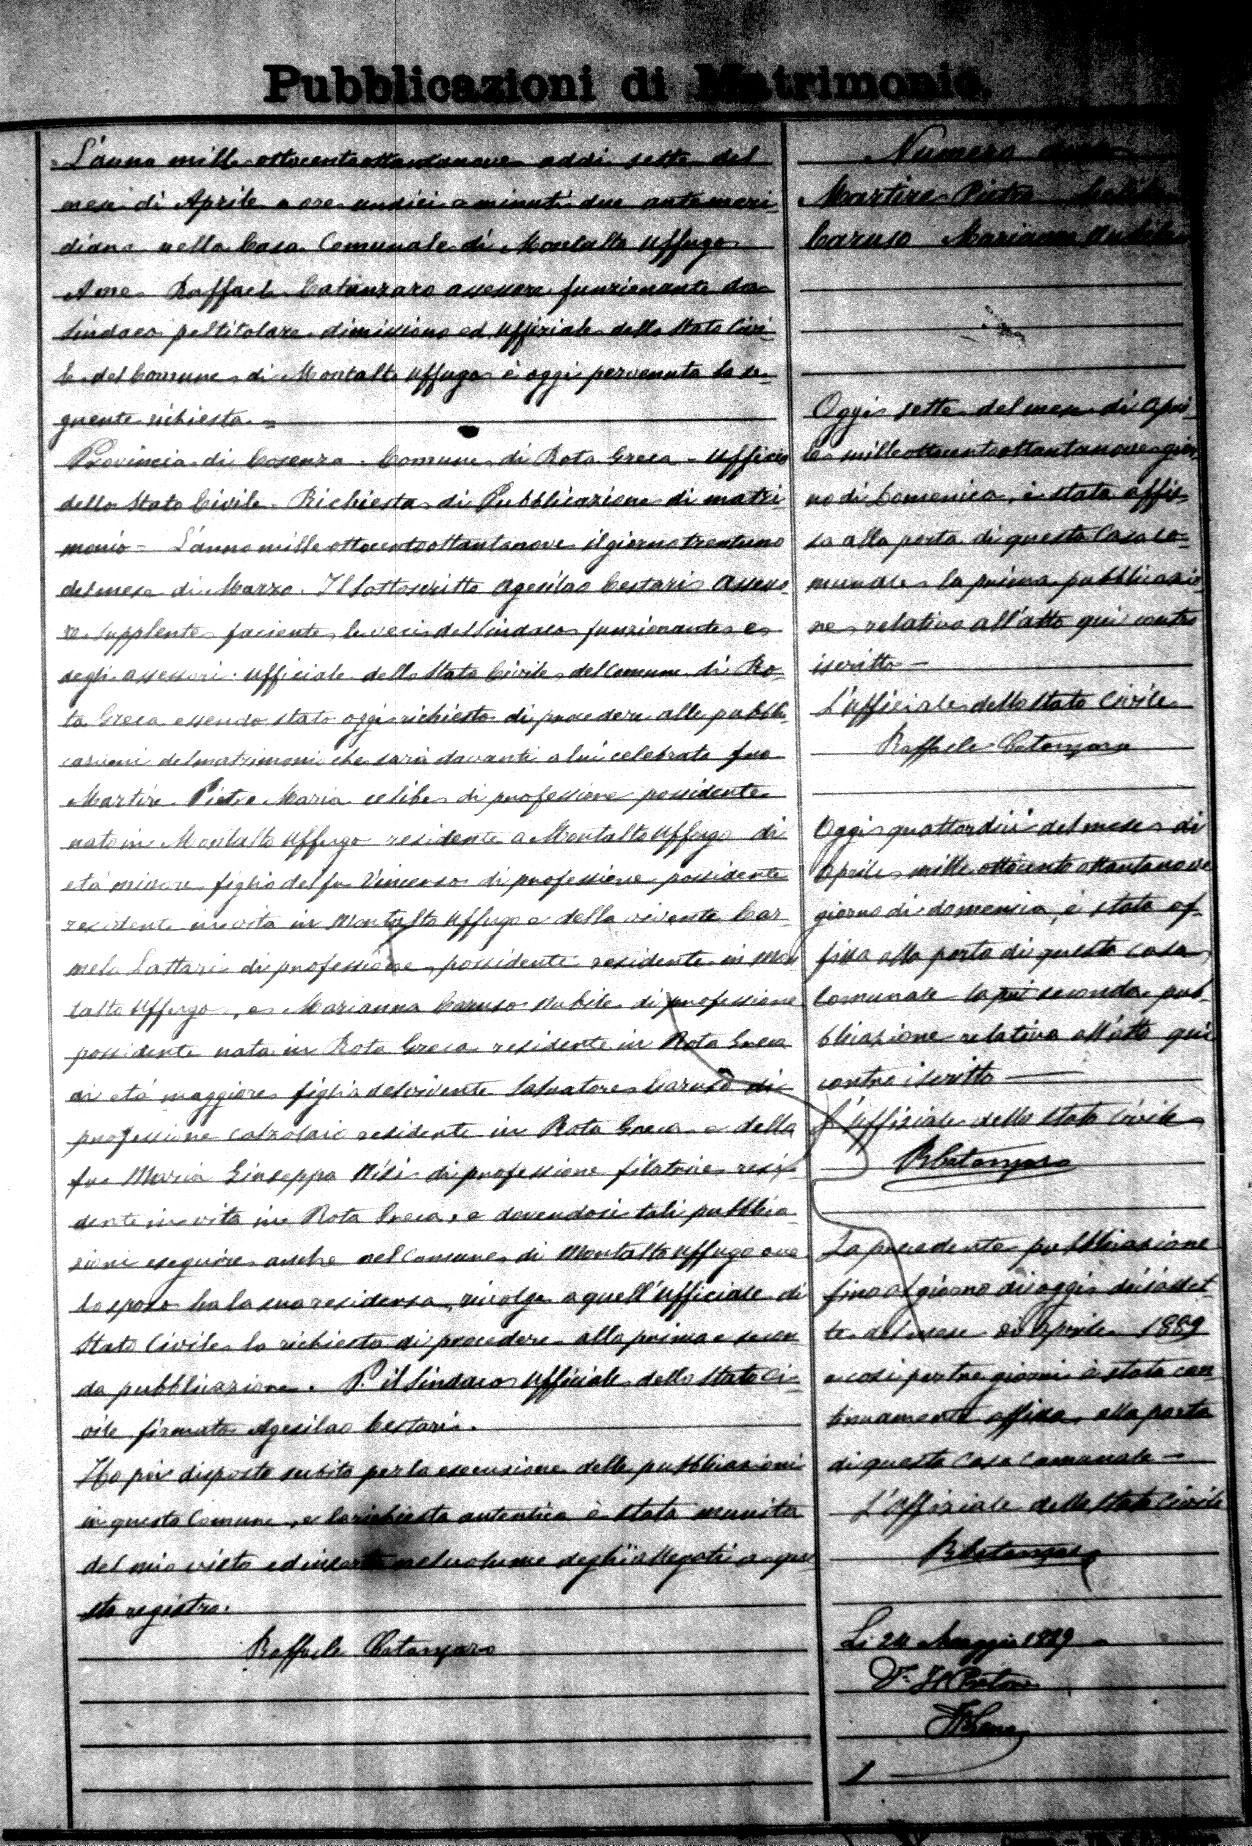 Pubblicazioni di Matrimonio.
L'anno mille ottocentottantanove addì sette del
mese di Aprile a ore undici e minuti due antimeri-
diane nella Casa Comunale di Montalto Uffugo
A me Raffaele Catanzaro assessore funzionante da
Sindaco pel titolare dimissiono ed uffiziale dello Stato Civi-
le del Comune di Montalto Uffugo è oggi pervenuta la se-
guente richiesta. =
Provincia di Cosenza. Comune di Rota Greca - Ufficio
dello Stato Civile. Richiesta di Pubblicazione di matri
monio - L'anno mille ottocentoottantanove il giorno trentuno
del mese di Marzo. Il Sottoscritto Agesilao Cestari Assesso
re supplente facente le veci del Sindaco funzionante e
degli assessori ufficiale dello Stato Civile del Comune di Ro-
ta Greca essendo stato oggi richiesto di procedere alle pubbli
cazioni del matrimonio che sarà davanti a lui celebrato fra
Martire Pietro Maria celibe di professione possidente
nato in Montalto Uffugo residente a Montalto Uffugo di
età minore figlio del fu Vincenzo di professione possidente
residente in vita in Montalto Uffugo e della vivente Car-
mela Lattari di professione possidente residente in Mon
talto Uffugo, e Marianna Caruso nubile di professione
possidente nata in Rota Greca residente in Rota Greca
di età maggiore figlia del vivente Salvatore Caruso di
professione calzolaio residente in Rota Greca e della
fu Maria Giuseppa Nisi di professione filatrice resi-
dente in vita in Rota Greca, e dovendosi tali pubblica-
zioni eseguire anche nel Comune di Montalto Uffugo ove
lo sposo ha la sua residenza, rivolge a quell'Ufficiale di
Stato Civile la richiesta di procedere alla prima e secon
da pubblicazione. P. il Sindaco Ufficiale dello Stato Ci-
vile firmato Agesilao Cestari.
Ho poi disposto subito per la esecuzione delle pubblicazioni
in questo Comune, e la richiesta autentica è stata munita
del mio visto ed inserta nel volume degli allegati a que
sto registro.
Raffaele Catanzaro
Numero
Martire Pietro celibe
Caruso Marianna nubile
Oggi sette del mese di Apri-
le mille ottocentoottantanove gior
no di Domenica, è stata affis-
sa alla porta di questa Casa co-
munale la prima pubblicazio
ne relativa all'atto qui contro
iscritto -
L'uffiziale dello Stato Civile
Raffaele Catanzaro
Oggi quattordici del mese di
Aprile mille ottocento ottantanove
giorno di domenica, è stata af-
fissa alla porta di questa casa
Comunale la pri seconda pub-
blicazione relativa all'atto qui
contro iscritto
L'Uffiziale dello Stato Civile
R Catanzaro
La precedente pubblicazione
fino al giorno di oggi diciasset
te del mese di Aprile 1889
e così per tre giorni è stata con
tinuamente affissa alla porta
di questa Casa Comunale -
L'Uffiziale dello Stato Civile
R Catanzaro
Li 24 Maggio 1889
V. Il Pretore